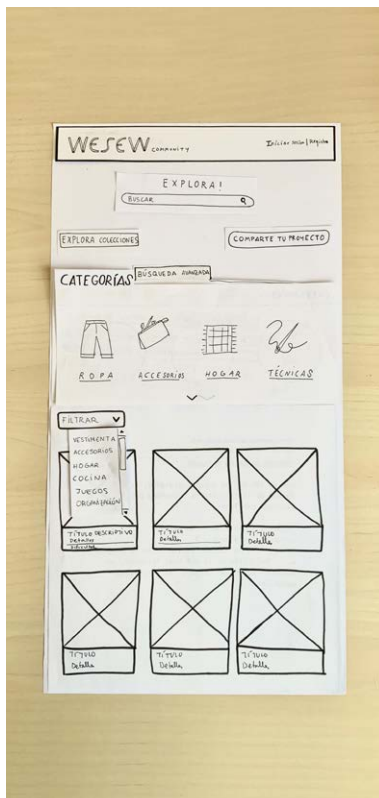 WESEW COMMUNITY
Iniciar sesión | Registro
EXPLORA!
BUSCAR
EXPLORA COLECCIONES
COMPARTE TU PROYECTO
CATEGORÍAS
BÚSQUEDA AVANZADA
ROPA
ACCESORIOS
HOGAR
TÉCNICAS
FILTRAR
VESTIMENTA
ACCESORIOS
HOGAR
COCINA
JUEGOS
ORGANIZACIÓN
TÍTULO DESCRIPTIVO
Detalles
TÍTULO
Detalles
TÍTULO
Detalles
TÍTULO
Detalles
TÍTULO
Detalles
TÍTULO
Detalles